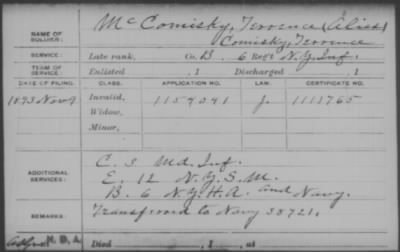 NAME OF SOLDIER: McComisky, Terrence (Alias)
Comisky, Terrence
SERVICE: Late rank, Co. B. 6 Reg't N.Y. Inf.
TERM OF SERVICE: Enlisted , 1 Discharged , 1
DATE OF FILING. CLASS. APPLICATION NO. LAW. CERTIFICATE NO.
1893 Nov 9 Invalid, 1154041 J. 1111765
Widow,
Minor,
C. 3 Md. Inf.
ADDITIONAL SERVICES: E. 12 N.Y.S.M.
B. 6 N.Y.H.A. and Navy.
REMARKS: Transferred to Navy 38721.
N.D.A.
Died , 1 , at